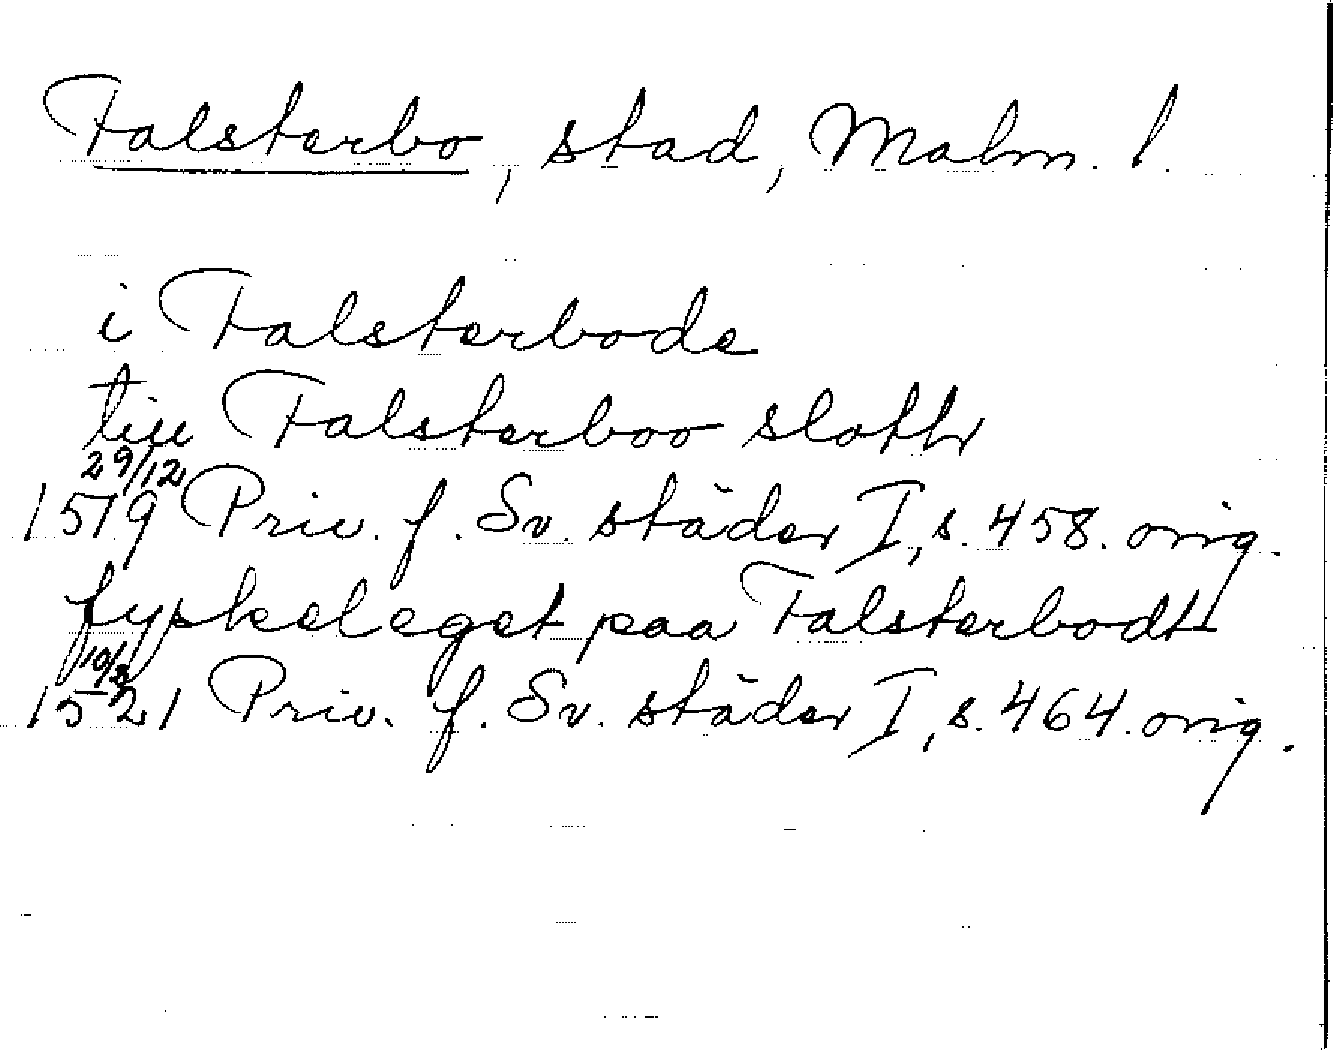 Falsterbo, stad, Malm. l.
i Falsterbode
till Falsterboo sloth
29/12
1519 Priv. f. Sv. städer I, s. 458. orig.
fyskeleget paa Falsterbodt
10/3
1521 Priv. f. Sv. städer I, s. 464. orig.